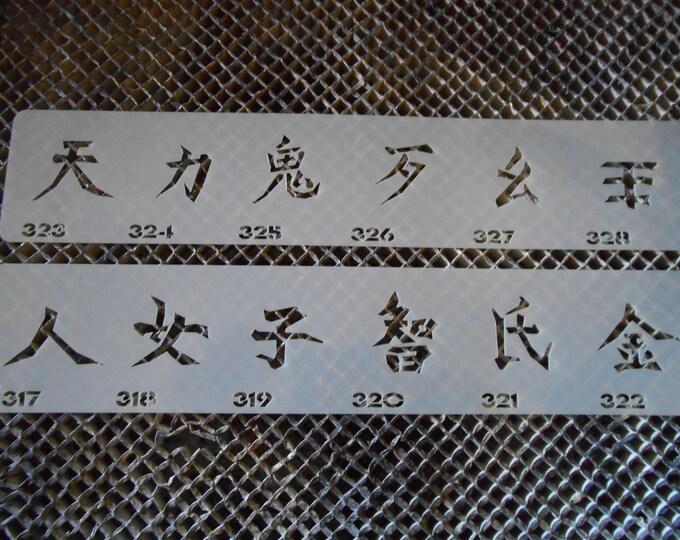 天 力 鬼 歹 幺 玉
323 324 325 326 327 328
人 女 子 智 氏 金
317 318 319 320 321 322